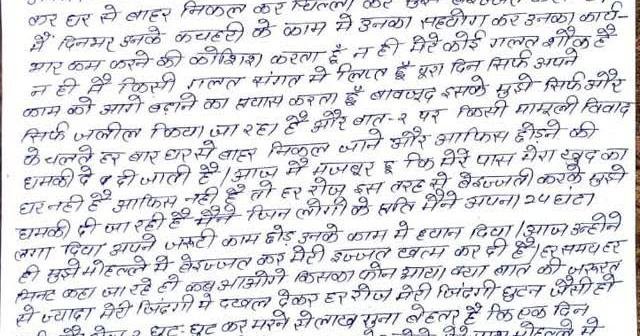 कर घर से बाहर निकल कर चिल्ला कर मुझे बेइज्जत
में दिनभर उनके कचहरी के काम में उनका सहयोग कर उनका कार्य-
भार कम करने की कोशिश करता हूँ न ही मेरे कोई गलत शौक है
न ही में किसी गलत संगत में लिप्त हूँ पूरा दिन सिर्फ अपने
काम को आगे बढ़ाने का प्रयास करता हूँ बावजूद इसके मुझे सिर्फ और
सिर्फ जलील किया जा रहा है और बात-२ पर किसी मामूली विवाद
के चलते हर बार घर से बाहर निकल जाने और आफिस छोड़ने की
धमकी दे दी जाती है। आज में मजबूर हू कि मेरे पास मेरा खुद का
घर नही है आफिस नही है तो हर रोज इस तरह से बेइज्जती करके मुझे
धमकी दी जा रही है मैंने जिन लोगों के प्रति मैंने अपना 24 घंटा
लगा दिया अपने जरूरी काम छोड़ उनके काम में ध्यान दिया। आज उन्होने
ही मुझे मोहल्ले में बेइज्जत कर मेरी इज्जत खत्म कर दी है। हर समय हर
मिनट कहा जा रहे हो कब आओगे किसका फोन आया। क्या बात की जरूरत
से ज्यादा मेरी जिंदगी में दखल देकर हर रोज मेरी जिंदगी घुटन जैसी हो
घुट-घुट कर मरने से लाख गुना बेहतर है कि एक दिन